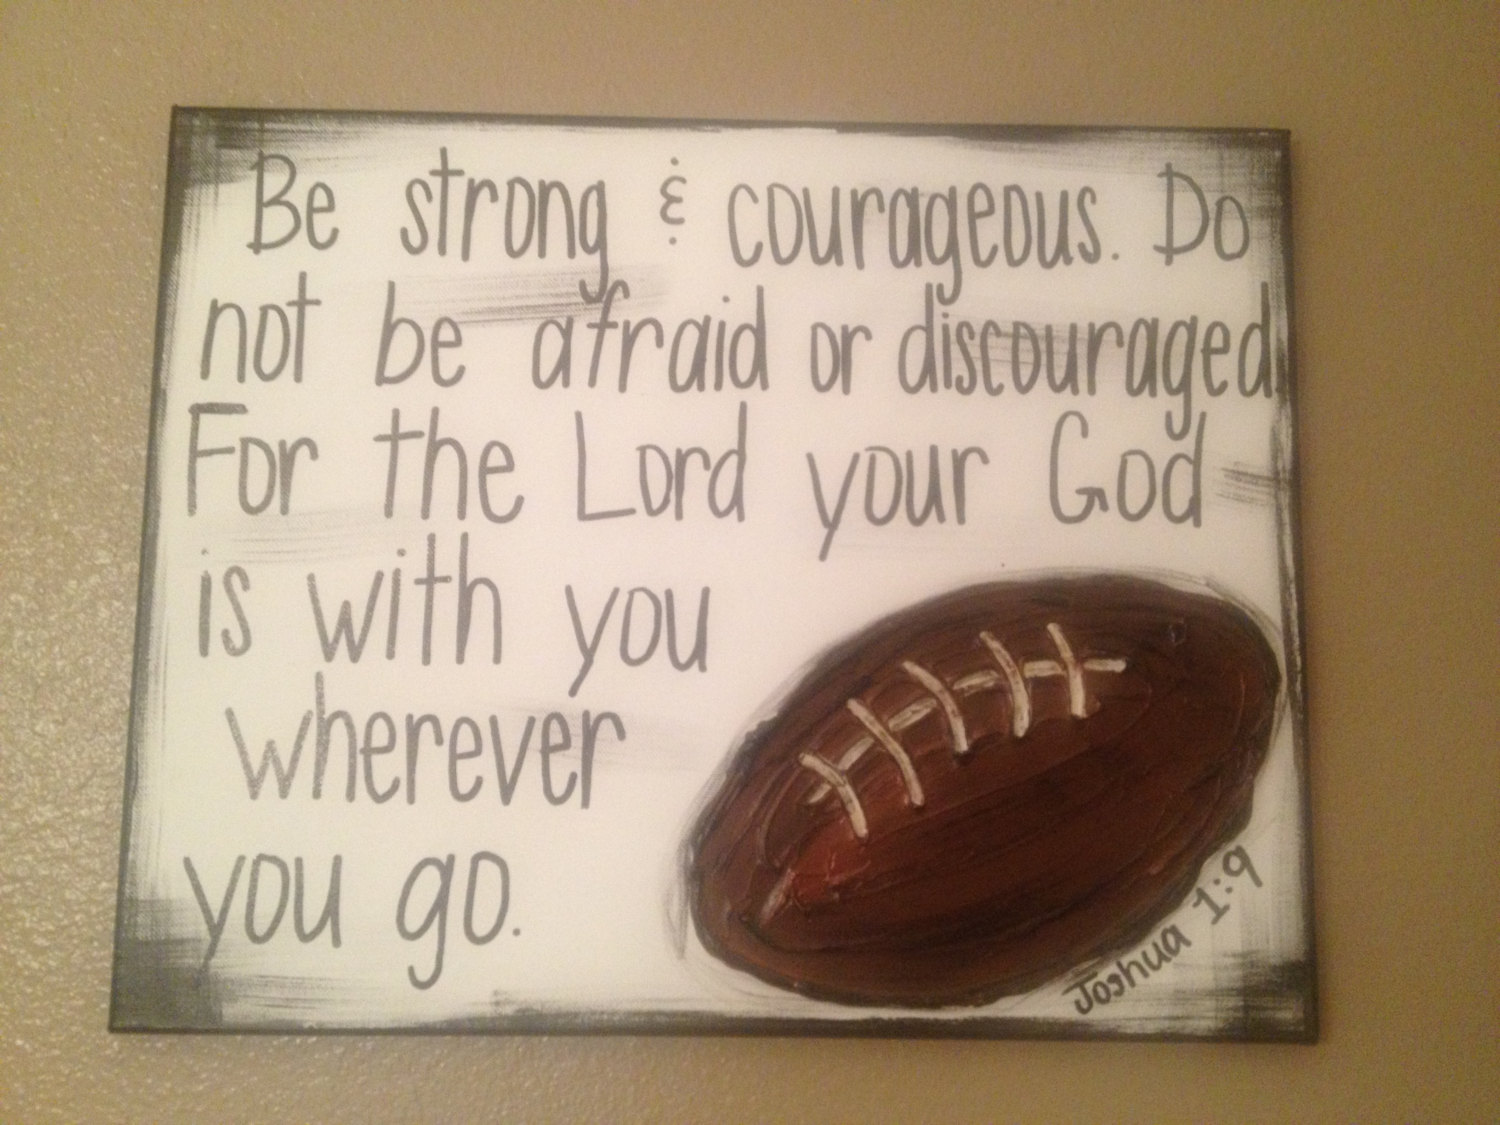 Be strong & courageous. Do
not be afraid or discouraged.
For the Lord your God
is with you
wherever
you go.
Joshua 1:9